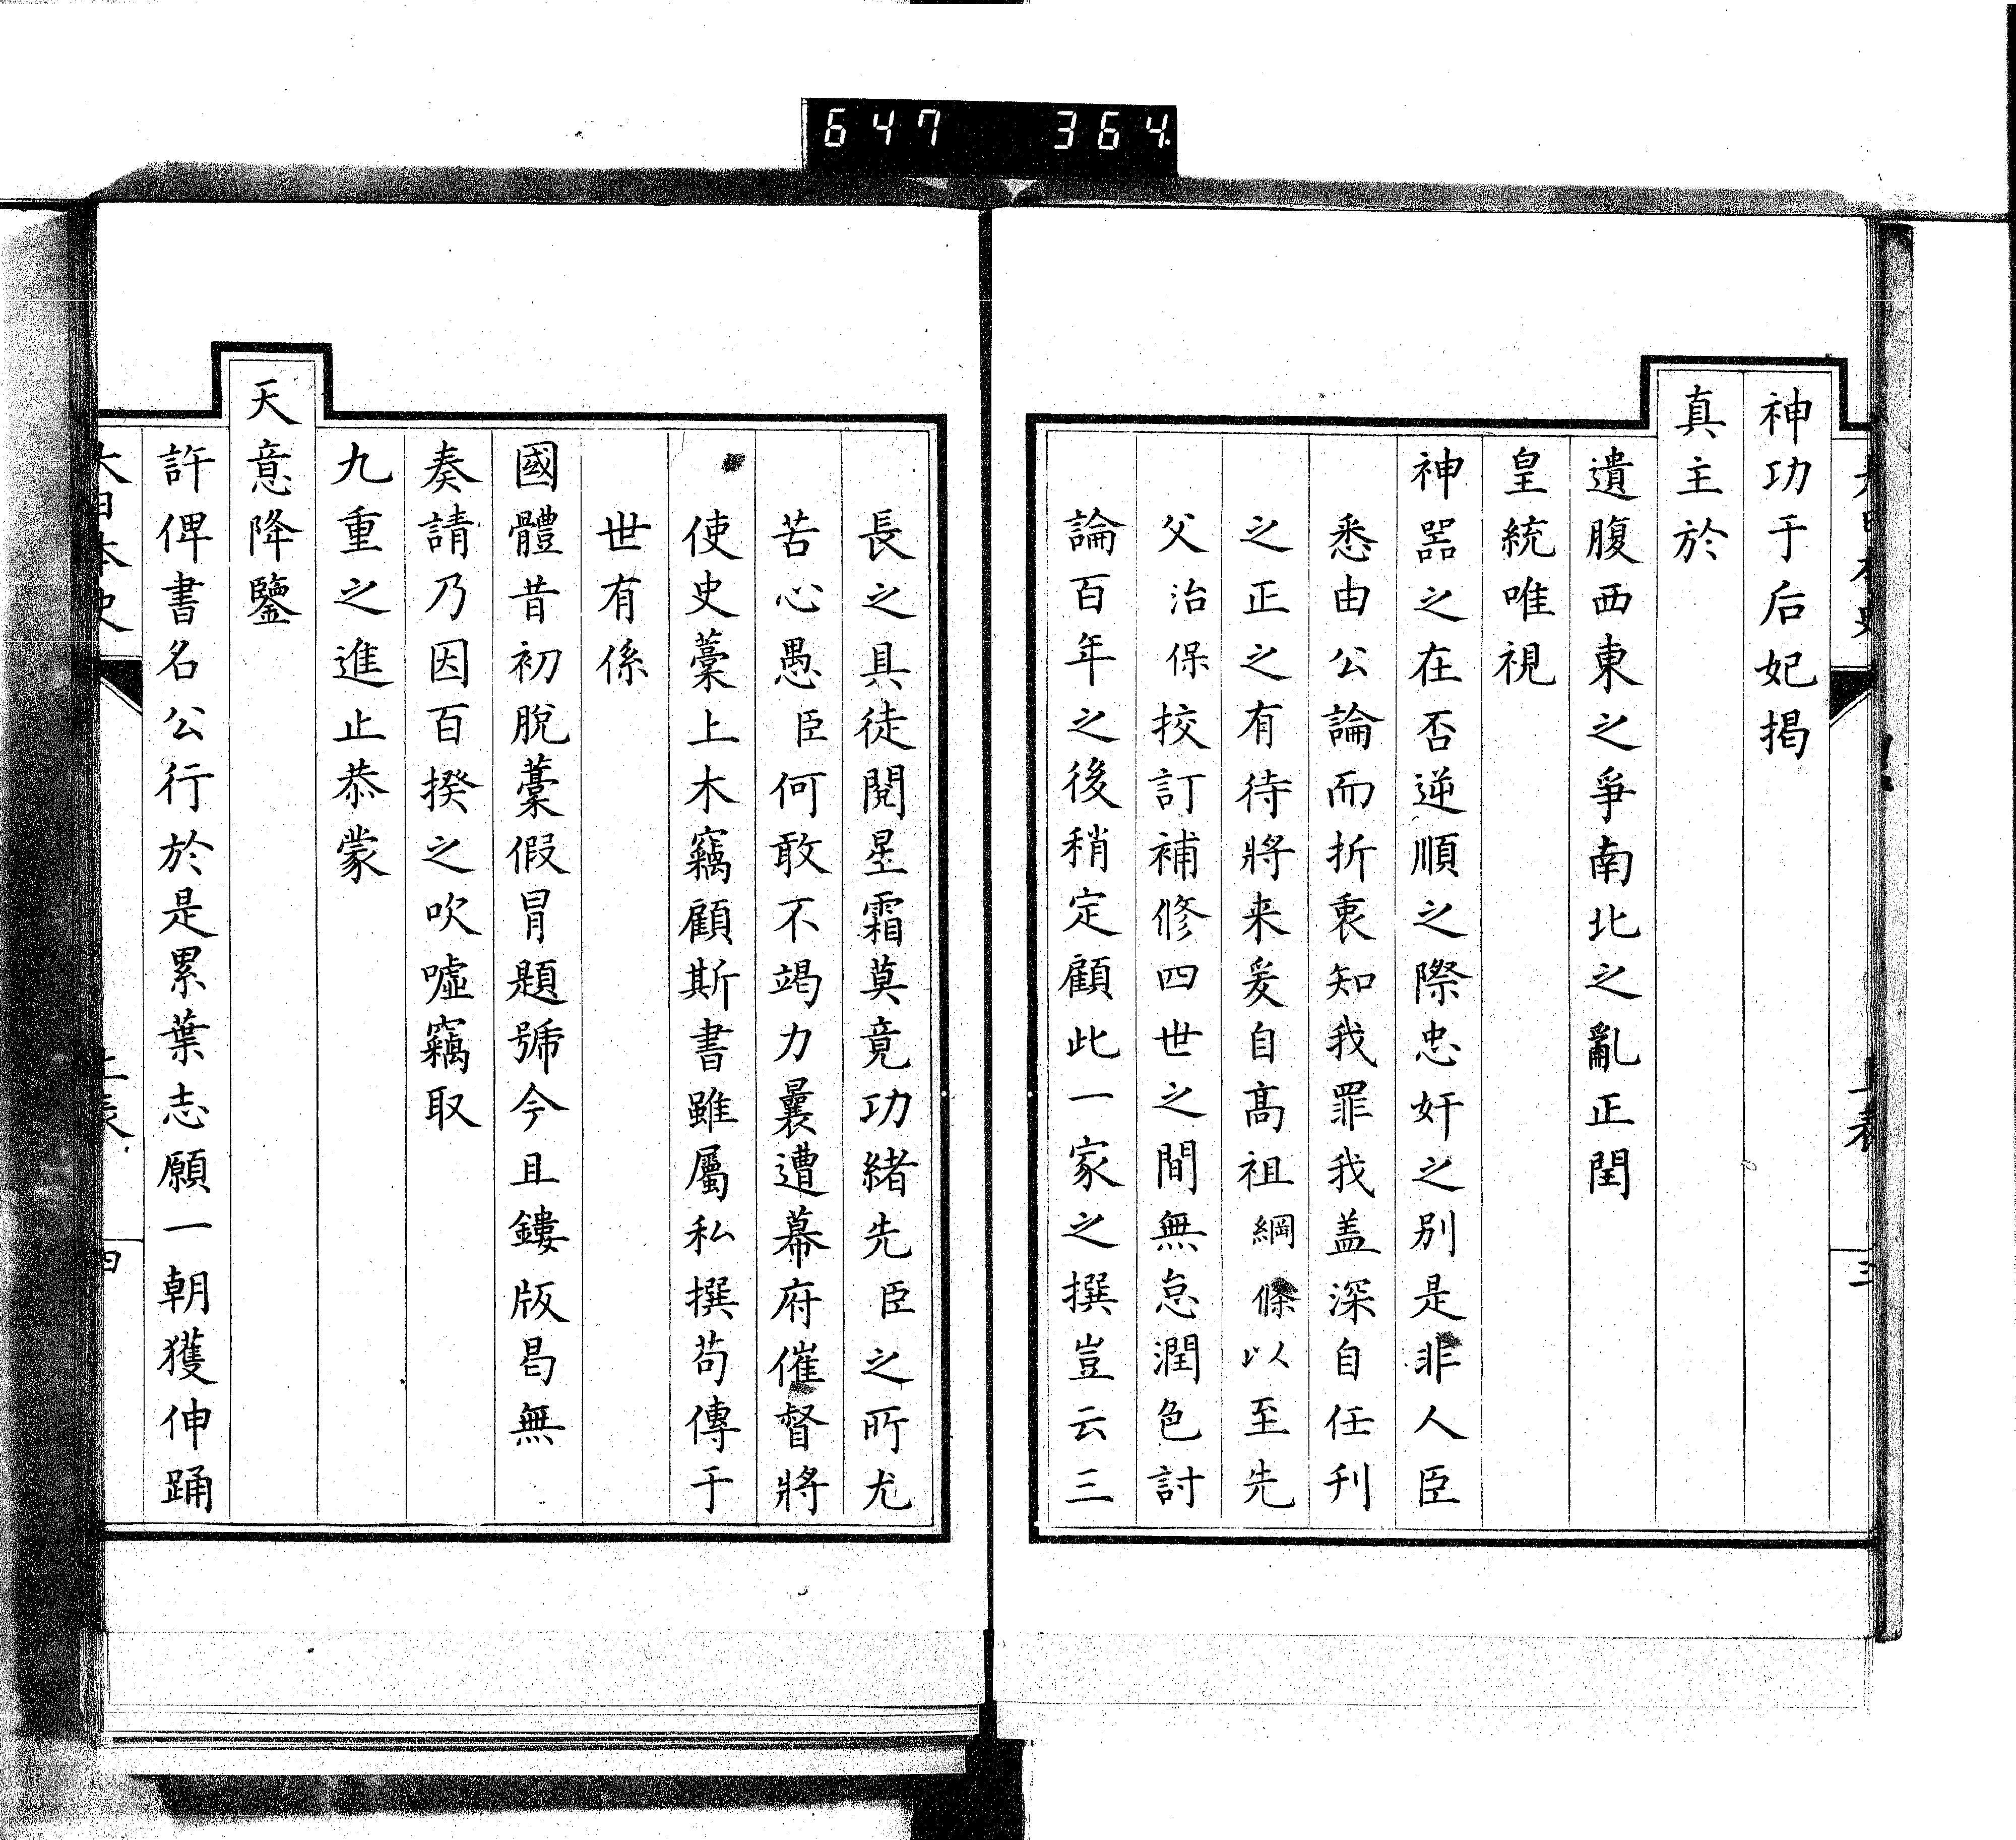 647 364
神功于后妃掲
真主於
遺腹西東之爭南北之亂正閏
皇統唯視
神器之在否逆順之際忠奸之別是非人臣
悉由公論而折衷知我罪我盖深自任刋
之正之有待將来爰自髙祖綱條以至先
父治保挍訂補修四世之間無怠潤色討
論百年之後稍定顧此一家之撰豈云三
長之具徒閲星霜莫竟功緒先臣之所尤
苦心愚臣何敢不竭力曩遭幕府催督將
使史藁上木竊顧斯書雖屬私撰苟傳于
世有係
國體昔初脫藁假冒題號今且鏤版曷無
奏請乃因百揆之吹嘘竊取
九重之進止恭蒙
天意降鑒
許俾書名公行於是累葉志願一朝獲伸踊
大日本史 上表 四